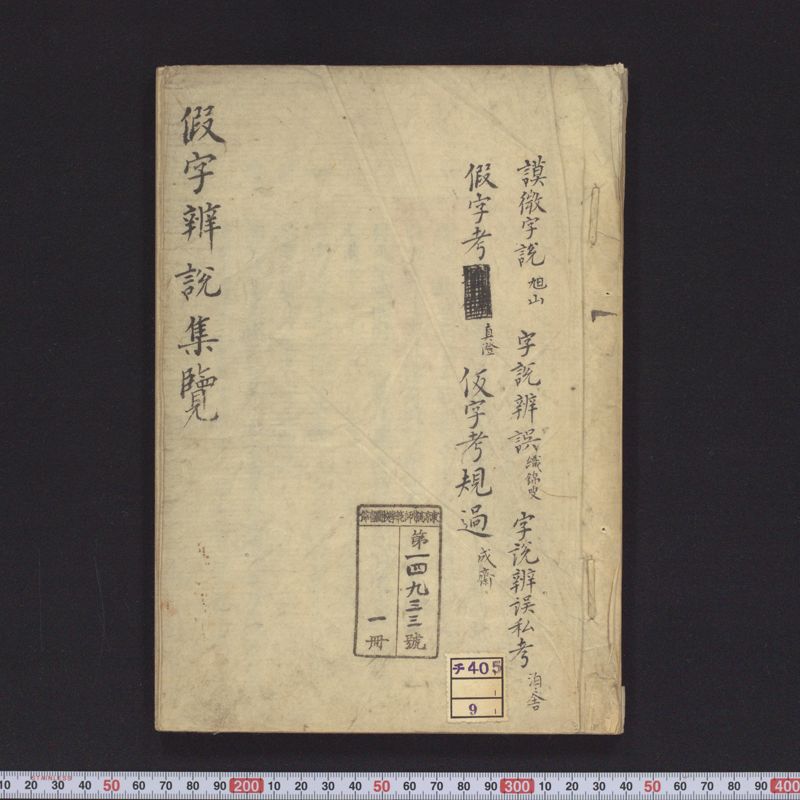 謨微字説 旭山 字説辨誤 織錦叟 字説辨誤私考 泊舎
假字考 真澄 仮字考規過 成齋
假字辨説集覽
第一四九三三號
一冊
チ405
9
STAINLESS
10 20 30 40 50 60 70 80 90 200 10 20 30 40 50 60 70 80 90 300 10 20 30 40 50 60 70 80 90 400